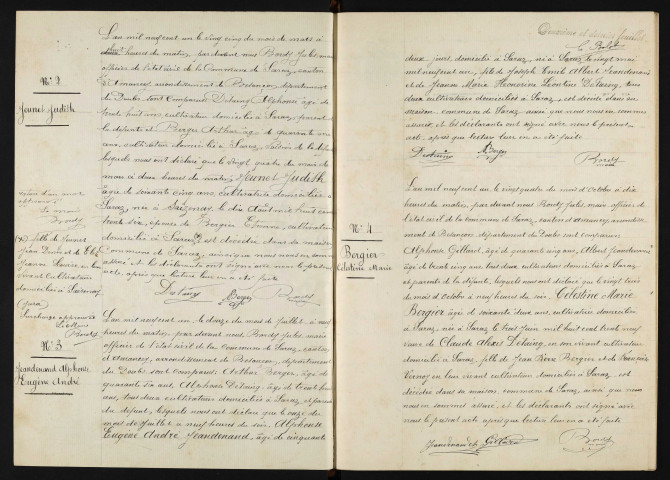 N° 2
Jeunet Judith
L'an mil neuf cent un le cinq du mois de mars à
heures du matin, par devant nous Bordy Jules maire
officier de l'état civil de la Commune de Saraz, canton
d'Amancey, arrondissement de Besançon, département
du Doubs, sont comparus Détang Alphonse âgé de
trente huit ans, cultivateur domicilié à Saraz, parent de
la défunte et Bergier Arthur âgé de quarante six
ans, cultivateur domicilié à Saraz, de la défunte
lesquels nous ont déclaré que le vingt quatre du mois de
à deux heures du matin, Jeunet Judith
âgée de soixante cinq ans, cultivatrice domiciliée à
Saraz, née à Saizenay le dix août mil huit cent
trente six, épouse de Bergier Etienne, cultivateur
domicilié à Saraz, est décédée dans sa maison
commune de Saraz, ainsi que nous nous en sommes
assuré et les déclarants ont signé avec nous le présent
acte, après que lecture leur en a été faite
Détang Bergier Bordy
fille de Jeunet
Jean
Jeanne Marie en leur
vivant cultivateurs
domiciliés à Saizenay
Jura
Surcharge approuvée
Le Maire
Bordy
N° 3
Jeandenand Alphonse
Eugène André
L'an mil neuf cent un le douze du mois de Juillet, à neuf
heures du matin, par devant nous Bordy Jules, maire
officier de l'état civil de la Commune de Saraz, canton
d'Amancey, arrondissement de Besançon, département
du Doubs, sont comparus Arthur Bergier, âgé de
quarante six ans, Alphonse Détang, âgé de trente huit
ans, tous deux cultivateurs domiciliés à Saraz, et parents
du défunt, lesquels nous ont déclaré que le onze du
mois de Juillet à neuf heures du soir, Alphonse
Eugène André Jeandenand, âgé de cinquante
Deuxième et dernier feuillet
deux jours, domicilié à Saraz, né à Saraz le vingt mai
mil neuf cent un, fils de Joseph Emile Albert Jeandenand
et de Jeanne Marie Honorine Léontine Détang, tous
deux cultivateurs domiciliés à Saraz, est décédé dans sa
maison, commune de Saraz, ainsi que nous nous en sommes
assuré, et les déclarants ont signé avec nous le présent
acte, après que lecture leur en a été faite.
Détang A. Bergier Bordy
N° 4
Bergier
Célestine Marie
L'an mil neuf cent un le vingt quatre du mois d'Octobre à dix
heures du matin, par devant nous Bordy Jules, maire, officier de
l'état civil de la commune de Saraz, canton d'Amancey, arrondisse-
ment de Besançon, département du Doubs, sont comparus
Alphonse Gillard, âgé de quarante cinq ans, Albert Jeandenand
âgé de trente cinq ans, tous deux cultivateurs domiciliés à Saraz,
et parents de la défunte, lesquels nous ont déclaré que le vingt trois
du mois d'Octobre à neuf heures du soir, Célestine Marie
Bergier âgée de soixante deux ans, cultivatrice domiciliée
à Saraz, née à Saraz le trois Juin mil huit cent trente neuf
veuve de Claude Alexis Détang, en son vivant cultivateur
domicilié à Saraz, fille de Jean Pierre Bergier et de Françoise
Vernoy en leur vivant cultivateurs domiciliés à Saraz, est
décédée dans sa maison, commune de Saraz, ainsi que nous
nous en sommes assuré, et les déclarants ont signé avec
nous le présent acte après que lecture leur en a été faite.
Jeandenand Gillard Bordy